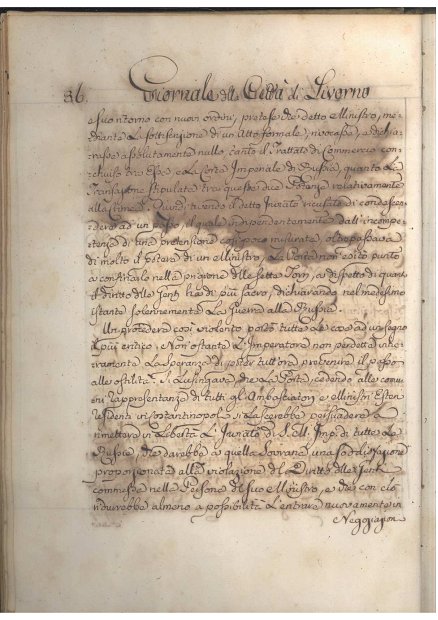 86. Giornale della Città di Livorno
e suo ritorno con nuovi ordini, pretese che detto Ministro, me-
diante la sottoscrizione di un Atto formale, rivocasse, e dichia-
rasse assolutamente nullo, tanto il Trattato di Commercio con-
chiuso tra Essa e la Corte Imperiale di Russia, quanto la
Transazione stipulata tra queste due Potenze relativamente
alla Crimea. Quindi avendo il detto Inviato ricusato di condesce-
ndere ad un passo, il quale indipendentemente dall'incompe-
tenza di una pretensione così poco misurata, oltrepassava
di molto il potere di un Ministro, la Porta non esitò punto
a confinarlo nella prigione delle sette Torri, a dispetto di quanto
il diritto delle Genti ha di più sacro, dichiarando nel medesimo
istante solennemente la Guerra alla Russia.
Un procedere così violento portò tutte le cose ad un segno
il più critico. Non ostante l'Imperatore non perdette intie-
ramente la Speranza di poter tuttora prevenire il passo
alle ostilità. Si lusingava, che la Porta, cedendo alle comu-
ni rappresentanze di tutti gli Ambasciatori, e Ministri Esteri
residenti in Costantinopoli si lascerebbe persuadere a
rimettere in Libertà l'Inviato di S. M. Imp. di tutte le
Russie, che darebbe a quella Sovrana una soddisfazione
proporzionata alla violazione del Diritto delle Genti
commessa nella Persona del suo Ministro, e che con ciò
ridurrebbe almeno a possibilità l'entrare nuovamente in
Negoziazion